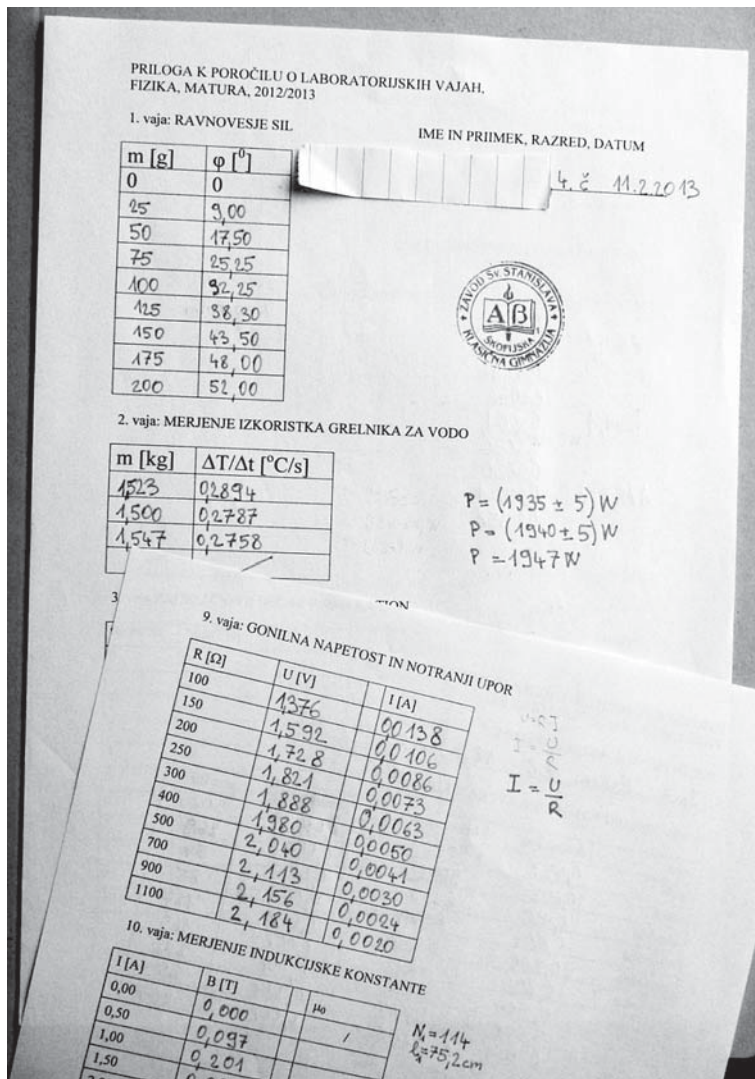 PRILOGA K POROČILU O LABORATORIJSKIH VAJAH,
FIZIKA, MATURA, 2012/2013
1. vaja: RAVNOVESJE SIL
IME IN PRIIMEK, RAZRED, DATUM
4. č 11.2.2013
m [g] φ [⁰]
0 0
25 9,00
50 17,50
75 25,25
100 32,25
125 38,30
150 43,50
175 48,00
200 52,00
ZAVOD SV. STANISLAVA
AB
ŠKOFIJSKA
KLASIČNA GIMNAZIJA
2. vaja: MERJENJE IZKORISTKA GRELNIKA ZA VODO
m [kg] ΔT/Δt [°C/s]
1,523 0,2894
1,500 0,2787
1,547 0,2758
P = (1935 ± 5) W
P = (1940 ± 5) W
P = 1947 W
3
9. vaja: GONILNA NAPETOST IN NOTRANJI UPOR
R [Ω] U [V] I [A]
100 1,376 0,0138
150 1,592 0,0106
200 1,728 0,0086
250 1,821 0,0073
300 1,888 0,0063
400 1,980 0,0050
500 2,040 0,0041
700 2,113 0,0030
900 2,156 0,0024
1100 2,184 0,0020
I = U/R
10. vaja: MERJENJE INDUKCIJSKE KONSTANTE
I [A] B [T] μ₀
0,00 0,000 /
0,50 0,097
1,00 0,201
1,50
N₁ = 114
l₁ = 75,2 cm